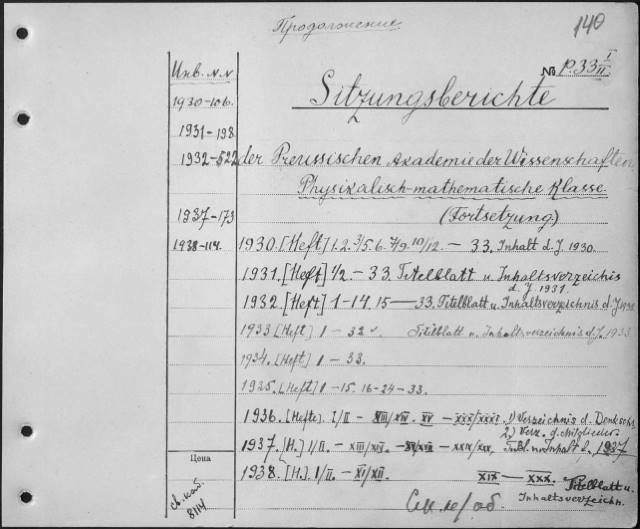 Продолжение
140
№ P.33 I/II
Инв. N.N
Sitzungsberichte
1930-106.
1931-198
1932-522
der Preussischen Akademie der Wissenschaften
Physikalisch-mathematische Klasse.
1937-173
(Fortsetzung)
1938-114.
1930. [Heft] 1.2.3/5.6.7/9.10/12. — 33. Inhalt d. J. 1930.
1931. [Heft] 1/2. — 33. Titelblatt u. Inhaltsverzeichnis d. J. 1931.
1932. [Heft] 1-14. 15 — 33. Titelblatt u. Inhaltsverzeichnis d. J. 1932
1933 [Heft] 1 — 32. Titelblatt u. Inhaltsverzeichnis d. J. 1933
1934. [Heft] 1 — 33.
1935. [Heft] 1 — 15. 16-24 — 33.
1936. [Hefte]. I/II — XIII/XIV. XV — XXX/XXXI. 1) Verzeichnis d. Denkschr.
2) Verz. d. Mitglieder
1937. [H.] I/II. — XIII/XIV. — — XXIX/XXX,
Inhalt 1937
Цена
1938. [H.] I/II. — XI/XII. XIX — XXX. Titelblatt u. Inhaltsverzeichn.
См. наоб.
8114
См. н/об